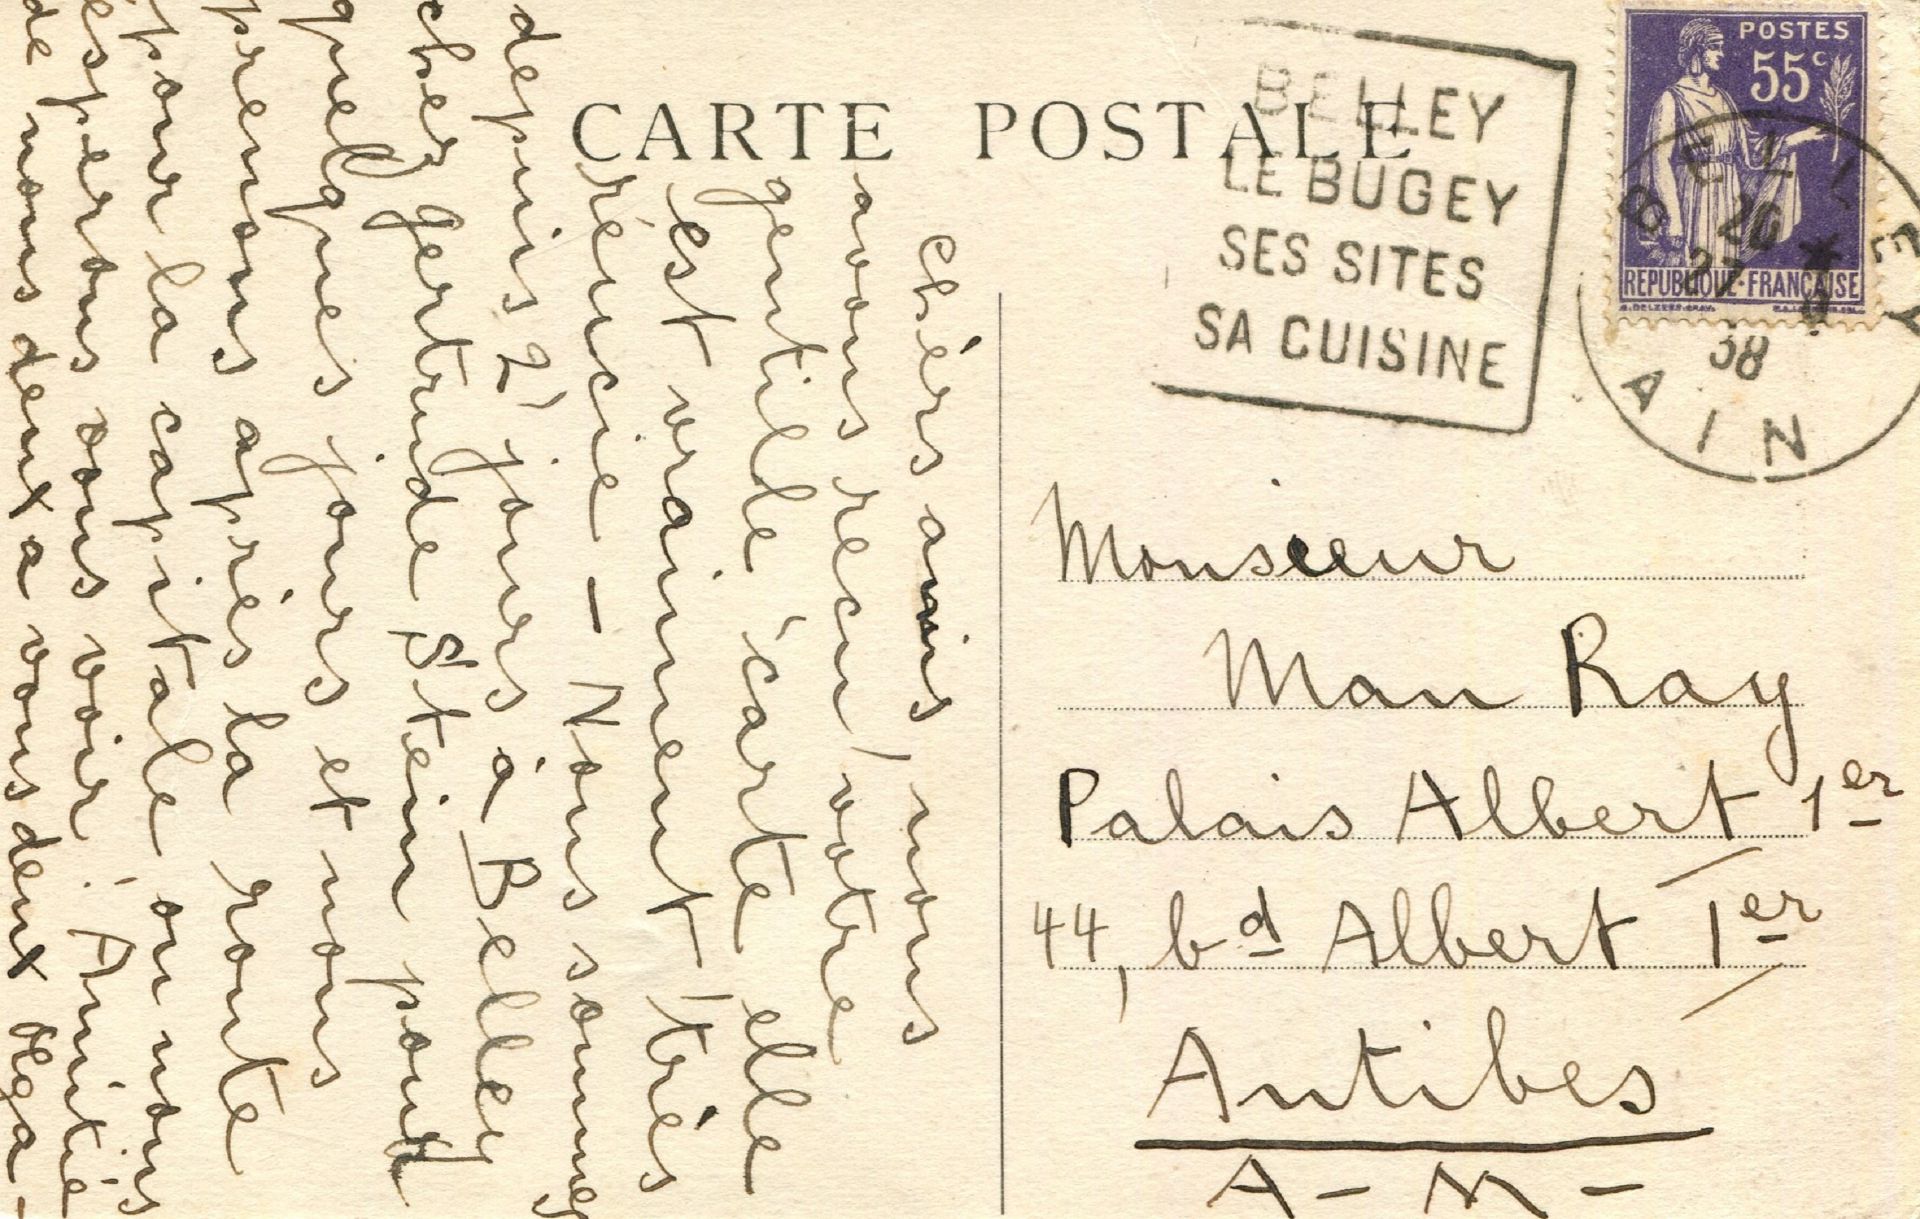 CARTE POSTALE
BELLEY
LE BUGEY
SES SITES
SA CUISINE
POSTES
55c
REPUBLIQUE-FRANÇAISE
BELLEY
20
27 *
38
AIN
chèrs amis, nous
avons reçu votre
gentille carte elle
est vraiment très
réucie – Nous sommes
depuis 2 jours à Belley
cher Gertrude Stein pour
quelques jours et nous
prenons après la route
pour la capitale où nous
espérons vous voir. Amitié
de nous deux a vous deux Olga –
Monsieur
Man Ray
Palais Albert 1er
44, bd Albert 1er
Antibes
A – M –